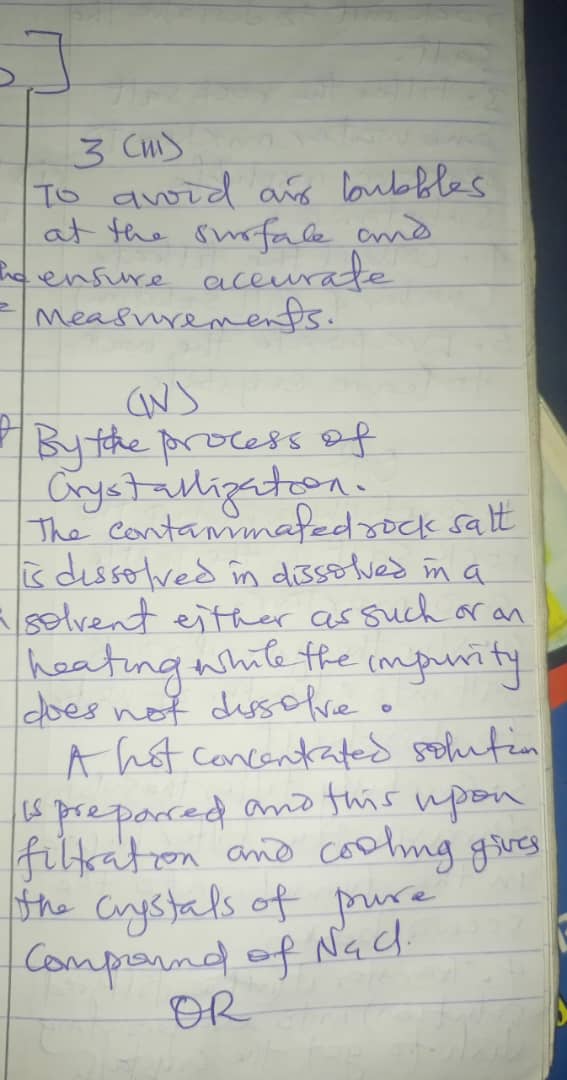 3 (iii)
To avoid air bubbles
at the surface and
ensure accurate
measurements.
(iv)
By the process of
Crystallization.
The contaminated rock salt
is dissolved in dissolved in a
solvent either as such or on
heating while the impurity
does not dissolve.
A hot concentrated solution
is prepared and this upon
filtration and cooling gives
the crystals of pure
compound of NaCl.
OR